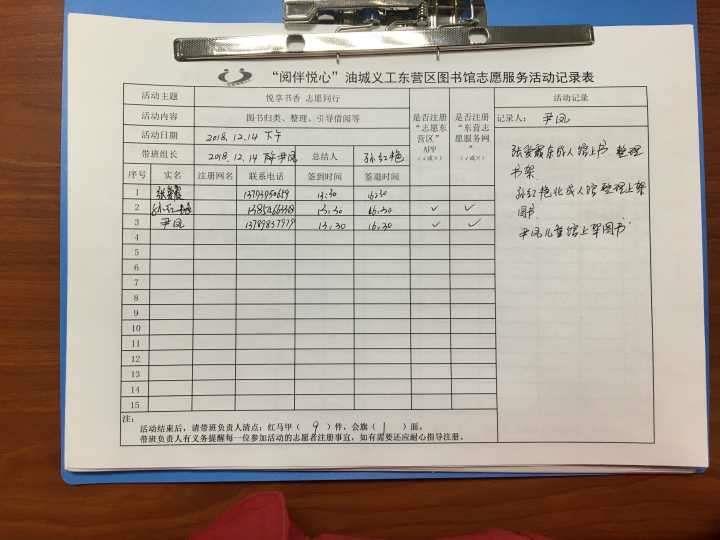 “阅伴悦心”油城义工东营区图书馆志愿服务活动记录表
活动主题 悦享书香 志愿同行
活动内容 图书归类、整理、引导借阅等
活动日期 2018.12.14 下午
带班组长 2018.12.14 尹凤 总结人 孙红艳
是否注册“志愿东营区”APP（√或×）
是否注册“东营志愿服务网”（√或×）
活动记录
记录人： 尹凤
序号 实名 注册网名 联系电话 签到时间 签退时间
1 张爱霞 13:30 16:30
2 孙红艳 13:30 16:30 ✓ ✓
3 尹凤 13789837979 13:30 16:30 ✓ ✓
4
5
6
7
8
9
10
11
12
13
14
15
张爱霞东成人馆上书 整理
书架
孙红艳北成人馆整理上架
图书
尹凤儿童馆上架图书
注：
活动结束后，请带班负责人清点：红马甲（ 9 ）件，会旗（ 1 ）面。
带班负责人有义务提醒每一位参加活动的志愿者注册事宜，如有需要还应耐心指导注册。